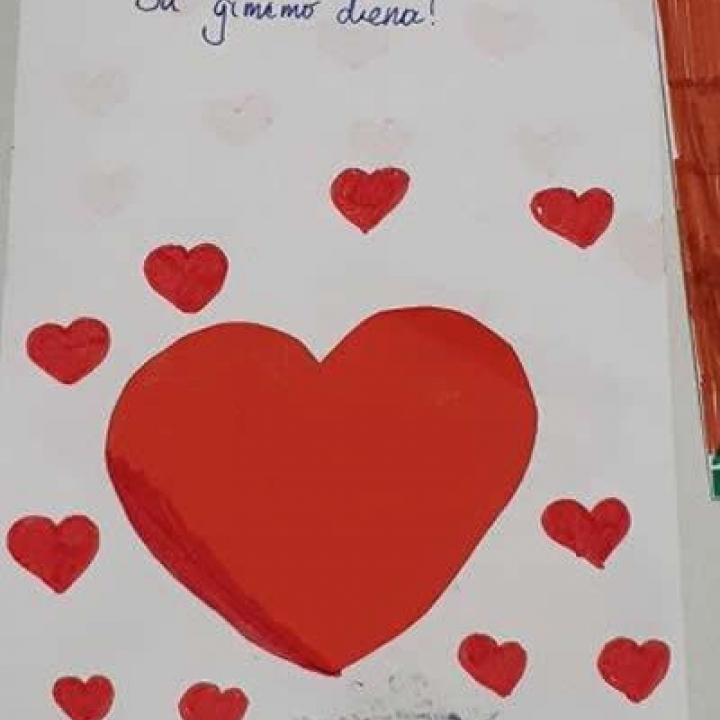 Su gimimo diena!